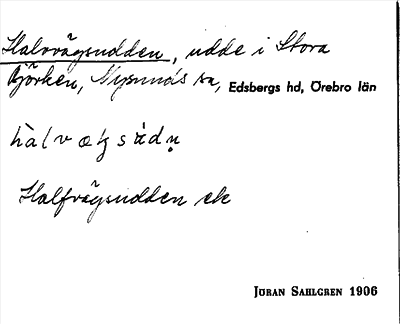 Halvvägsudden, udde i Stora
Björken, Nysunds sn, Edsbergs hd, Örebro län
hàlvægsádṇ
Halfvägsudden ek
JÖRAN SAHLGREN 1906